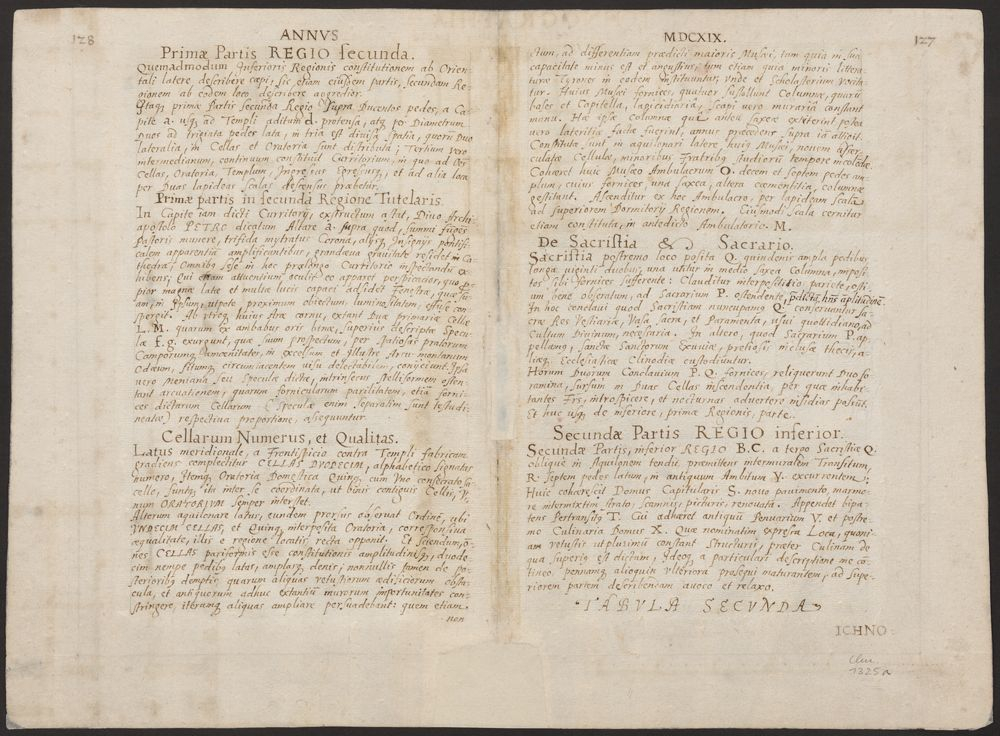 128
ANNVS
Primæ Partis REGIO secunda.
Quemadmodum Inferioris Regionis constitutionem ab Orien-
tali latere describere cœpi, sic etiam eiusdem partis, secundam Re-
gionem ab eodem loco describere aggredior.
Itaq, primæ Partis Secunda Regio supra Ducentos pedes, a Ca-
pite a. usq, ad Templi aditum d. protensa, atq, per Diametrum
Duos ad triginta pedes lata, in tria est divisa spatia, quorũ Duo
lateralia, in Cellas et Oratoria sunt distributa; Tertium vero
intermedianum, continuum constituit Curritorium, in quo ad
Cellas, Oratoria, Templum, Ingressus Egressusq, et ad alia loca
per Duas lapideas Scalas Descensus præbetur.
Primæ partis in secunda Regione Tutelaris.
In Capite iam dicti Curritorij, extructum astat, Divo Archi-
apostolo PETRO dicatum Altare a. supra quod, summi
Pastoris munere, trifida myratus Corona, alijsq, Insignijs pontifi-
calem apparentiam amplificantibus, grandæva gravitate residet in Ca-
thedra; Omnibus sese in hoc prælongo Curtitorio inspectandũ ex-
hibens; Qui etiam attuentium oculis eo apparet perspicacior, quo
pior magnæ late et multæ lucis capaci adsidet Fenestra, quæ
in Ipsum, utpote proximum obiectum, luminositatem
spergit. Ab utroq, huius Aræ cornu, extant Duæ primariæ Cellæ
L. M. quarum ex ambabus oris binæ, superius descriptæ Specu-
læ F. g. exurgunt, quæ suum prospectum, per spatiosas pratorum
Camporumq, amœnitates, in excelsum et illustre Arcu montanum
Odæum, situmq, circumiacentem visu delectabilem, conijciunt. Ipsa
vero Meniana seu Speculæ dictæ, intrinsecus stelliformem osten-
tant arcuationem, quarum fornicularum parilitatem, etiã forni-
ces dictarum Cellarum (Speculæ enim separatim sunt testudi-
neatæ) respectiva proportione, assequuntur.
Cellarum Numerus, et Qualitas.
Latus meridionale, a Frontispicio contra Templi fabricam
gradiens complectitur CELLAS DVODECIM, alphabetico signatas
numero, Itemq, Oratoria Domestica Quinq, cum Vno consecrato Sa-
cello, suntq, ita inter se coordinata, ut binis contiguis Cellis, V-
num ORATORIVM semper interstet.
Alterum aquilonare latus, eundem prorsus observat Ordinẽ, ubi
VNDECIM CELLAS, et Quinq, interposita Oratoria, correspondiva
æqualitate, illis e regione locatis recta opponit. Et sciendum, o-
ñes CELLAS pariformis esse constitutionis amplitudinisq, duode-
cim nempe pedibus latas, amplasq, denis; nonnullis tamen de po-
sterioribus demptis, quarum aliquas vetustiorum ædificiorum obsta-
cula, et antiquorum adhuc extantiũ murorum importunitates con-
stringere, iterumq, aliquas ampliare persuadebant: quem etiam
non
MDCXIX.
127
ctum, ad differentiam prædicti maioris Musei, tam quia in sua
capacitate minus est et angustius, tum etiam quia minoris littera-
turæ Tyrones in eodem Instituuntur, vnde et Scholasterium vocita-
tur. Huius Musei fornices, quatuor sustollunt Columnæ, quarũ
bases et Capitella, lapicidiaria, scapi vero muraria constant
manu. Hæ ipsæ columnæ qui antea saxeæ extiterint postea
vero lateritiæ factæ fuerint, annus præcedens supra iã attigit.
Constituta sunt, in aquilonari latere huius Musæi, novem
culatæ Cellulæ, minoribus Fratribus studiorũ tempore incolendæ.
Cohæret huic Musæo Ambulacrum O. decem et septem pedes am-
plum, cuius fornices una saxea, altera cæmentitia, columnæ
gestitant. Ascenditur ex hoc Ambulacro, per lapideam Scalã
ad superiorem Dormitorij Regionem. Eiusmodi Scala cernitur
etiam constituta, in antedicto Ambulatorio. M.
De Sacristia & Sacrario.
Sacristia postremo loco posita Q. quindenis ampla pedibus
longa viginti duobus, una utitur in medio Saxea Columna, imposi-
tos sibi fornices sufferente: Clauditur interpositio pariete, osti-
um bene obseratum, ad Sacrarium P. ostendente,
In hoc conclavi quod Sacristiam nuncupamus Q. conservantur Sa-
cræ Res Vestiariæ, Vasa sacra, et Paramenta, usui quottidiano, ad
Cultum Divinum, necessaria. In altero, quod Sacrarium P. ap-
pellamus, sanctæ Sanctorum Exuviæ, pretiosis inclusæ thecis, a-
liæq, Ecclesiasticæ Clinodiæ custodiuntur.
Horum Duorum Conclavium P. Q. fornices, reliquerunt Duo fo-
ramina, sursum in Duas Cellas inscendentia, per quæ inhabi-
tantes Frs, introspicere, et nocturnas advertere insidias possint.
Et huc usq, de inferiore, primæ Regionis, parte.
Secundæ Partis REGIO inferior.
Secundæ Partis, inferior REGIO B.C. a tergo Sacristiæ Q.
oblique in Aquilonem tendit, præmittens intermuralem Transitum,
R. septem pedes latum, in antiquum Ambitum Y. excurrentem:
Huic cohærescit Domus Capitularis S. novo pavimento, marmo-
re intermixtim strato, scamnis, picturis, renovata. Appendet bipa-
tens Pertransitus T. Cui adhæret antiquũ Penuarium V. et postre-
mo Culinaria Domus X. Quæ nominatim expressa Loca, quoni-
am vetustis utplurimũ constant Structuris, præter Culinam de
qua superius est dictum, Ideoq, a particulari descriptione me cõ-
tineo, pennamq, alioquin vlteriora prosequi maturantem, ad supe-
riorem partem describendam avoco et relaxo.
TABULA SECUNDA
ICHNO:
Clm
1325a